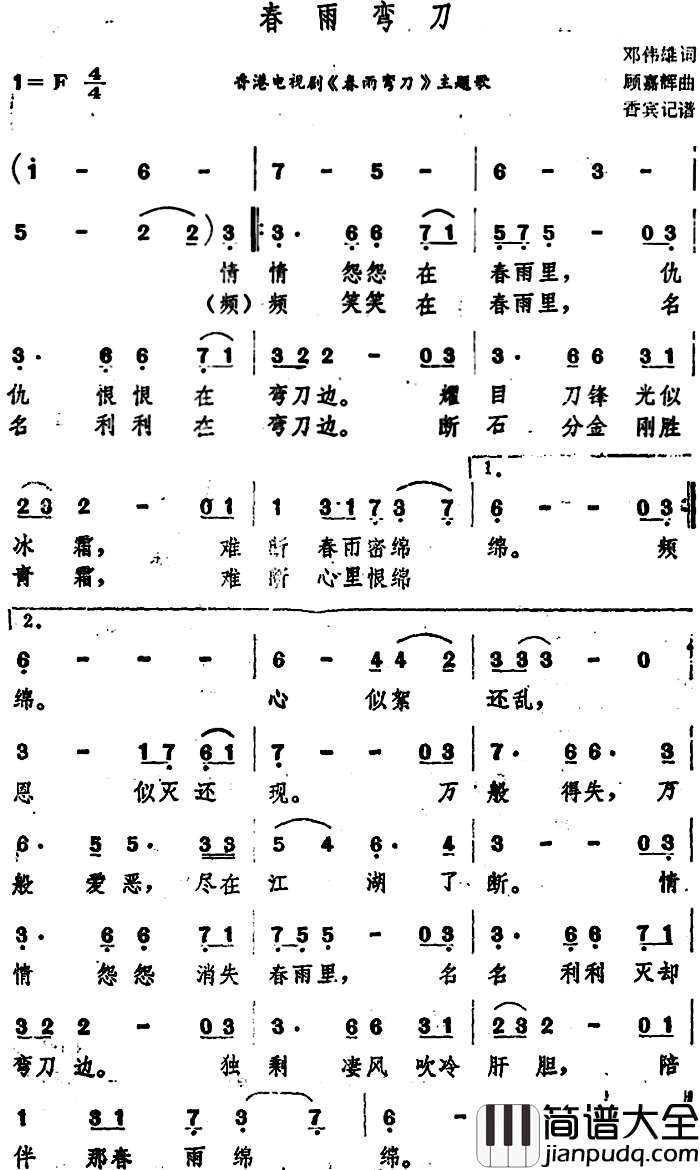 春雨弯刀
邓伟雄词
1=F 4/4 香港电视剧《春雨弯刀》主题歌 顾嘉辉曲
香宾记谱
(i - 6 - | 7 - 5 - | 6 - 3 - |
5 - 2 2) 3 |: 3· 6 6 7 1 | 5 7 5 - 0 3 |
情 情 怨怨在 春雨里, 仇
(频) 频 笑笑在 春雨里, 名
3· 6 6 7 1 | 3 2 2 2 - 0 3 | 3· 6 6 3 1 |
仇 恨恨在 弯刀边。 耀 目 刀锋光似
名 利利在 弯刀边。 断 石 分金刚胜
1.
2 3 2 - 0 1 | 1 3 1 7 3 7 | 6 - - 0 3 :|
冰霜, 难 断 春雨密绵 绵。 频
青霜, 难 断 心里恨绵
2.
6 - - - | 6 - 4 4 2 | 3 3 3 - 0 |
绵。 心 似絮 还乱,
3 - 1 7 6 1 | 7 - - 0 3 | 7· 6 6· 3 |
恩 似灭还 现。 万 般 得失, 万
6· 5 5· 3 3 | 5 4 6· 4 | 3 - - 0 3 |
般 爱恶, 尽在 江 湖了 断。 情
3· 6 6 7 1 | 7 5 5 - 0 3 | 3· 6 6 7 1 |
情 怨怨 消失 春雨里, 名 名 利利 灭却
3 2 2 - 0 3 | 3· 6 6 3 1 | 2 3 2 - 0 1 |
弯刀边。 独 剩 凄风吹冷 肝胆, 陪
1 3 1 7 3 7 | 6 -
伴 那春 雨绵 绵。
简谱大全
jianpudq.com